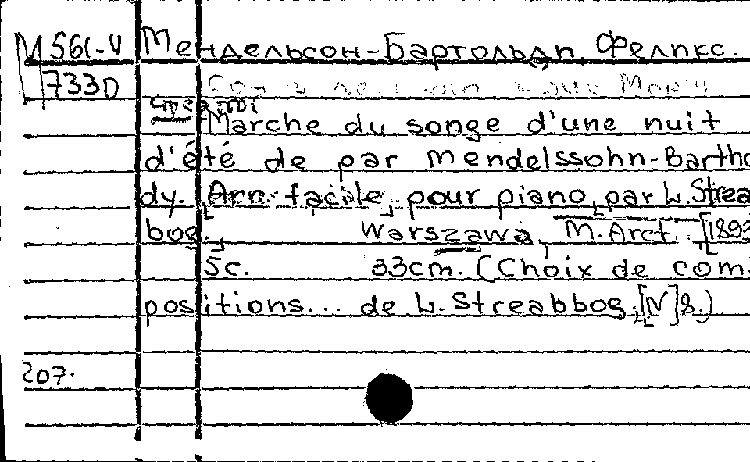 М 561-V Мендельсон-Бартольди, Феликс.
733D
Marche du songe d'une nuit
d'été de par Mendelssohn-Bartho
dy. [Arr. facile] pour piano, par L. Strea
bog. Warszawa, M. Arct. [1893
5c. 33cm. (Choix de com
positions... de L. Streabbog. [N] 8.)
207.